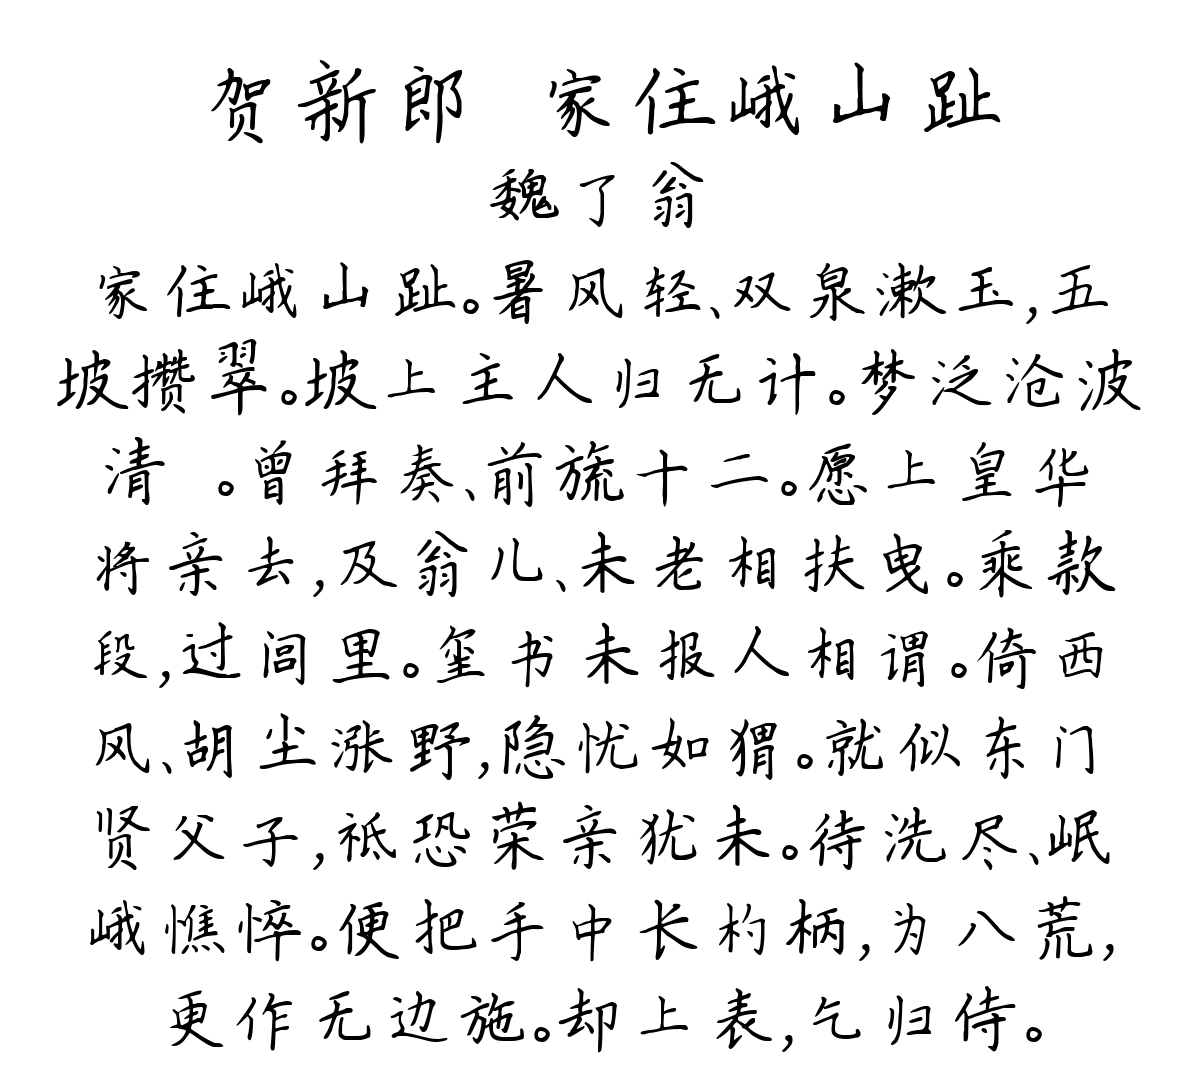 贺新郎 家住峨山趾
魏了翁
家住峨山趾。暑风轻、双泉漱玉,五
坡攒翠。坡上主人归无计。梦泛沧波
清 。曾拜奏、前旒十二。愿上皇华
将亲去,及翁儿、未老相扶曳。乘款
段,过闾里。玺书未报人相谓。倚西
风、胡尘涨野,隐忧如猬。就似东门
贤父子,祗恐荣亲犹未。待洗尽、岷
峨憔悴。便把手中长杓柄,为八荒,
更作无边施。却上表,乞归侍。